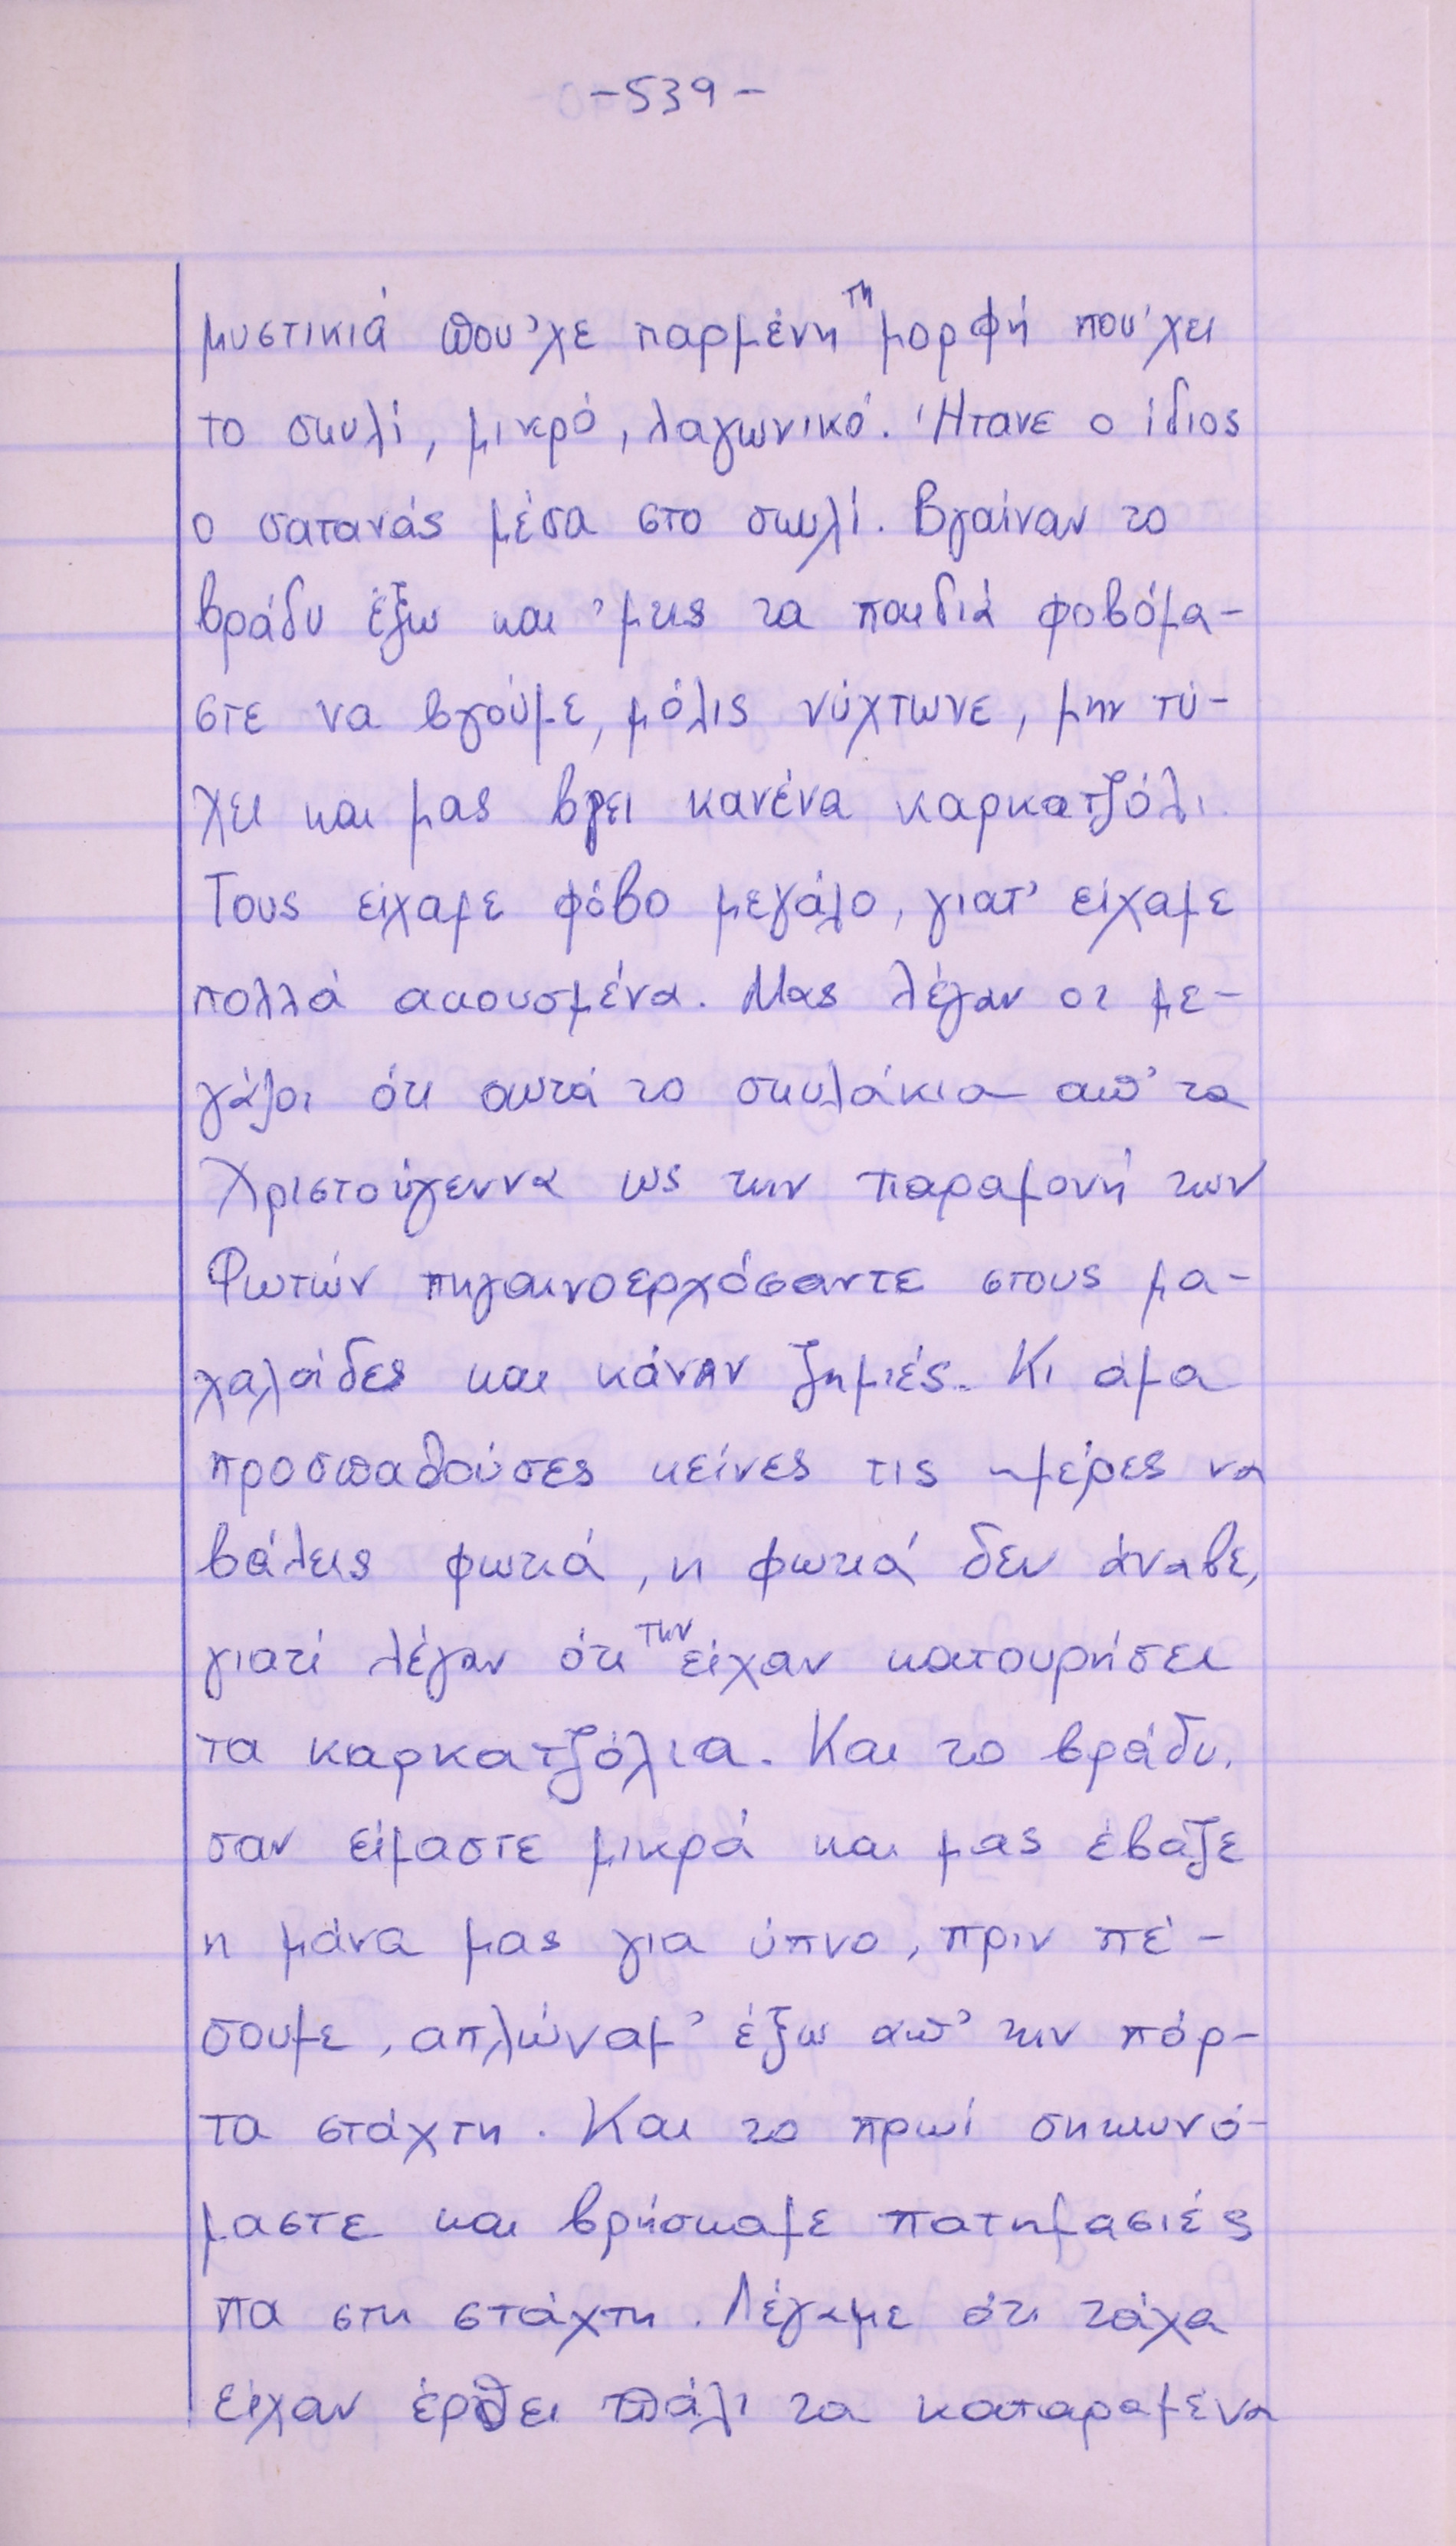 -539-
μυστικιά που'χε παρμένη τη μορφή που'χει
το σκυλί, μικρό, λαγωνικό. Ήτανε ο ίδιος
ο σατανάς μέσα στο σκυλί. Βγαίναν το
βράδυ έξω και 'μεις τα παιδιά φοβόμα-
στε να βγούμε, μόλις νύχτωνε, μην τύ-
χει και μας βρει κανένα καρκατζόλι.
Τους είχαμε φόβο μεγάλο, γιατ' είχαμε
πολλά ακουσμένα. Μας λέγαν οι με-
γάλοι ότι αυτά τα σκυλάκια απ' τα
Χριστούγεννα ως την παραμονή των
Φωτών πηγαινοερχόσαντε στους μα-
χαλάδες και κάναν ζημιές. Κι άμα
προσπαθούσες κείνες τις ημέρες να
βάλεις φωτιά, η φωτιά δεν άναβε,
γιατί λέγαν ότι την είχαν κατουρήσει
τα καρκατζόλια. Και το βράδυ,
σαν είμαστε μικρά και μας έβαζε
η μάνα μας για ύπνο, πριν πέ-
σουμε, απλώναμ' έξω απ' την πόρ-
τα στάχτη. Και το πρωί σηκωνό-
μαστε και βρήσκαμε πατημασιές
πα στη στάχτη. Λέγαμε ότι τάχα
είχαν έρθει πάλι τα καταραμένα